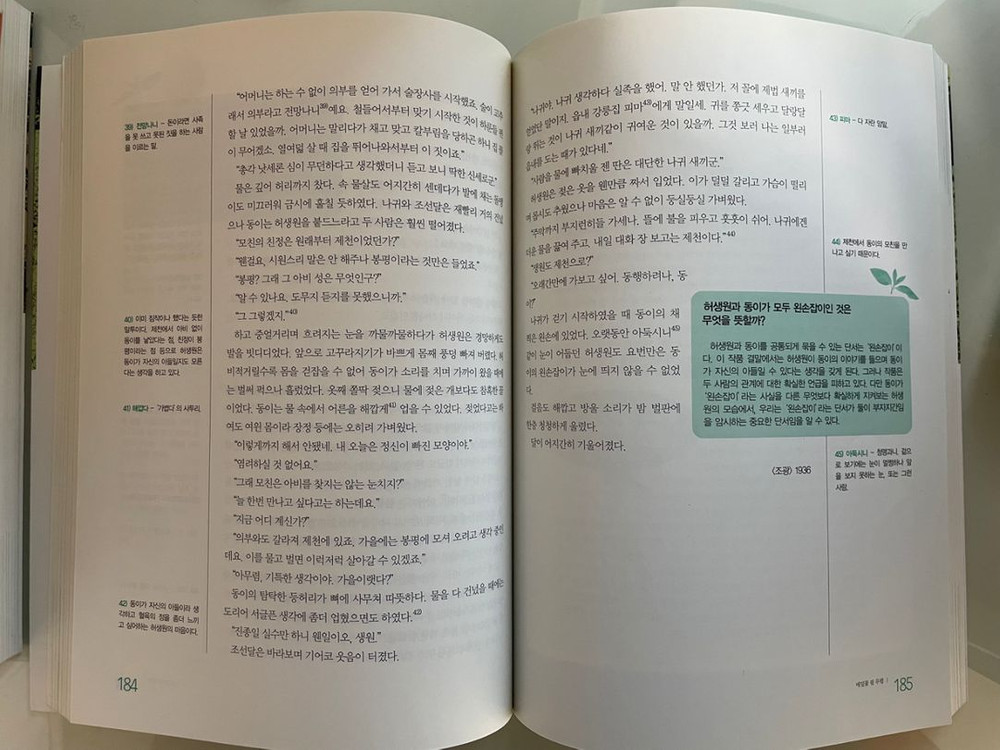 "어머니는 하는 수 없이 의부를 얻어 가서 술장사를 시작했죠. 술이 고주
래서 의부라고 전망나니39)예요. 철들어서부터 맞기 시작한 것이 하룬들 편
할 날 있었을까. 어머니는 말리다가 채고 맞고 칼부림을 당하곤 하니 집 꼴
이 무어겠소. 열여덟 살 때 집을 뛰어나와서부터 이 짓이죠."
"총각 낫세론 심이 무던하다고 생각했더니 듣고 보니 딱한 신세로군."
물은 깊어 허리까지 찼다. 속 물살도 어지간히 센데다가 발에 채는 돌멩
이도 미끄러워 금시에 훌칠 듯하였다. 나귀와 조선달은 재빨리 거의 건넜
으나 동이는 허생원을 붙드느라고 두 사람은 훨씬 떨어졌다.
"모친의 친정은 원래부터 제천이었던가?"
"웬걸요, 시원스리 말은 안 해주나 봉평이라는 것만은 들었죠."
"봉평? 그래 그 아비 성은 무엇인구?"
"알 수 있나요. 도무지 듣지를 못했으니까."
"그 그렇겠지."40)
하고 중얼거리며 흐려지는 눈을 까물까물하다가 허생원은 경망하게도
발을 빗디디었다. 앞으로 고꾸라지기가 바쁘게 몸째 풍덩 빠져 버렸다. 허
비적거릴수록 몸을 걷잡을 수 없어 동이가 소리를 치며 가까이 왔을 때에
는 벌써 퍽으나 흘렀었다. 옷째 쫄딱 젖으니 물에 젖은 개보다도 참혹한 꼴
이었다. 동이는 물 속에서 어른을 해깝게41) 업을 수 있었다. 젖었다고는 하
여도 여윈 몸이라 장정 등에는 오히려 가벼웠다.
"이렇게까지 해서 안됐네. 내 오늘은 정신이 빠진 모양이야."
"염려하실 것 없어요."
"그래 모친은 아비를 찾지는 않는 눈치지?"
"늘 한번 만나고 싶다고는 하는데요."
"지금 어디 계신가?"
"의부와도 갈라져 제천에 있죠. 가을에는 봉평에 모셔 오려고 생각 중인
데요. 이를 물고 벌면 이럭저럭 살아갈 수 있겠죠."
"아무렴, 기특한 생각이야. 가을이랬다?"
동이의 탐탁한 등허리가 뼈에 사무쳐 따뜻하다. 물을 다 건넜을 때에는
도리어 서글픈 생각에 좀더 업혔으면도 하였다.42)
"진종일 실수만 하니 웬일이오, 생원."
조선달은 바라보며 기어코 웃음이 터졌다.
39) 전망나니 - 돈이라면 사족
을 못 쓰고 못된 짓을 하는 사람
을 이르는 말.
40) 이미 짐작이나 했다는 듯한
말투이다. 제천에서 아비 없이
동이를 낳았다는 점, 친정이 봉
평이라는 점 등으로 허생원은
동이가 자신의 아들일지도 모른
다는 생각을 하고 있다.
41) 해깝다 - '가볍다'의 사투리.
42) 동이가 자신의 아들이라 생
각하고 혈육의 정을 좀더 느끼
고 싶어하는 허생원의 마음이다.
184
"나귀야, 나귀 생각하다 실족을 했어. 말 안 했던가. 저 꼴에 제법 새끼를
얻었단 말이지. 읍내 강릉집 피마43)에게 말일세. 귀를 쫑긋 세우고 달랑달
랑 뛰는 것이 나귀 새끼같이 귀여운 것이 있을까. 그것 보러 나는 일부러
읍내를 도는 때가 있다네."
"사람을 물에 빠치울 젠 딴은 대단한 나귀 새끼군."
허생원은 젖은 옷을 웬만큼 짜서 입었다. 이가 덜덜 갈리고 가슴이 떨리
며 몹시도 추웠으나 마음은 알 수 없이 둥실둥실 가벼웠다.
"주막까지 부지런히들 가세나. 뜰에 불을 피우고 훗훗이 쉬어. 나귀에겐
더운 물을 끓여 주고. 내일 대화 장 보고는 제천이다."44)
"생원도 제천으로?"
"오래간만에 가보고 싶어. 동행하려나, 동
이?"
나귀가 걷기 시작하였을 때 동이의 채
찍은 왼손에 있었다. 오랫동안 아둑시니45)
같이 눈이 어둡던 허생원도 요번만은 동
이의 왼손잡이가 눈에 띄지 않을 수 없었
다.
걸음도 해깝고 방울 소리가 밤 벌판에
한층 청청하게 울렸다.
달이 어지간히 기울어졌다.
〈조광〉 1936
43) 피마 - 다 자란 암말.
44) 제천에서 동이의 모친을 만
나고 싶기 때문이다.
허생원과 동이가 모두 왼손잡이인 것은
무엇을 뜻할까?
허생원과 동이를 공통되게 묶을 수 있는 단서는 '왼손잡이'이
다. 이 작품 결말에서는 허생원이 동이의 이야기를 들으며 동이
가 자신의 아들일 수 있다는 생각을 갖게 된다. 그러나 작품은
두 사람의 관계에 대한 확실한 언급을 피하고 있다. 다만 동이가
'왼손잡이'라는 사실을 다른 무엇보다 확실하게 지켜보는 허생
원의 모습에서, 우리는 '왼손잡이'라는 단서가 둘이 부자지간임
을 암시하는 중요한 단서임을 알 수 있다.
45) 아둑시니 - 청맹과니. 겉으
로 보기에는 눈이 멀쩡하나 앞
을 보지 못하는 눈, 또는 그런
사람.
메밀꽃 필 무렵
185